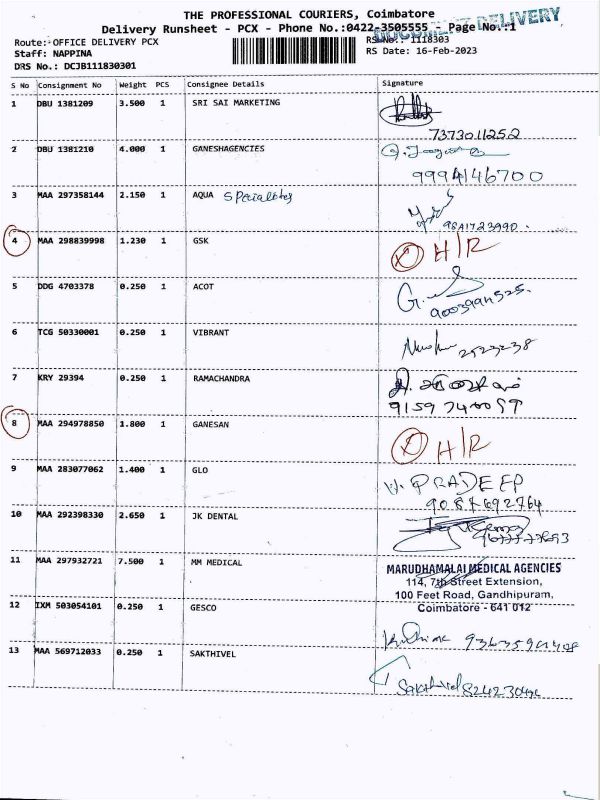 THE PROFESSIONAL COURIERS, Coimbatore
DOCUMENT DELIVERY
Delivery Runsheet - PCX - Phone No.:0422-3505555 - Page No.:1
Route: OFFICE DELIVERY PCX
RS No.: 1118303
Staff: NAPPINA
RS Date: 16-Feb-2023
DRS No.: DCJB111830301
S No Consignment No Weight PCS Consignee Details Signature
1 DBU 1381209 3.500 1 SRI SAI MARKETING
7373011252
2 DBU 1381210 4.000 1 GANESHAGENCIES
9994146700
3 MAA 297358144 2.150 1 AQUA Specialities
9841723990.
4 MAA 298839998 1.230 1 GSK H/R
5 DDG 4703378 0.250 1 ACOT
6 TCG 50330001 0.250 1 VIBRANT
7 KRY 29394 0.250 1 RAMACHANDRA
8 MAA 294978850 1.800 1 GANESAN H/R
9 MAA 283077062 1.400 1 GLO V. PRADEEP
9087692764
10 MAA 292398330 2.650 1 JK DENTAL
11 MAA 297932721 7.500 1 MM MEDICAL MARUDHAMALAI MEDICAL AGENCIES
114, 7th Street Extension,
100 Feet Road, Gandhipuram,
Coimbatore - 641 012
12 IXM 503054101 0.250 1 GESCO
13 MAA 569712033 0.250 1 SAKTHIVEL
Sakthivel